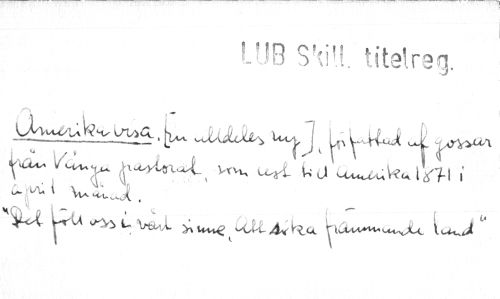 LUB Skill. titelreg.
Amerikavisa. [En alldeles ny], författad af gossar
från Vånga pastorat, som rest till Amerika 1871 i
april månad.
"Det föll oss i vårt sinne, Att söka främmande land"